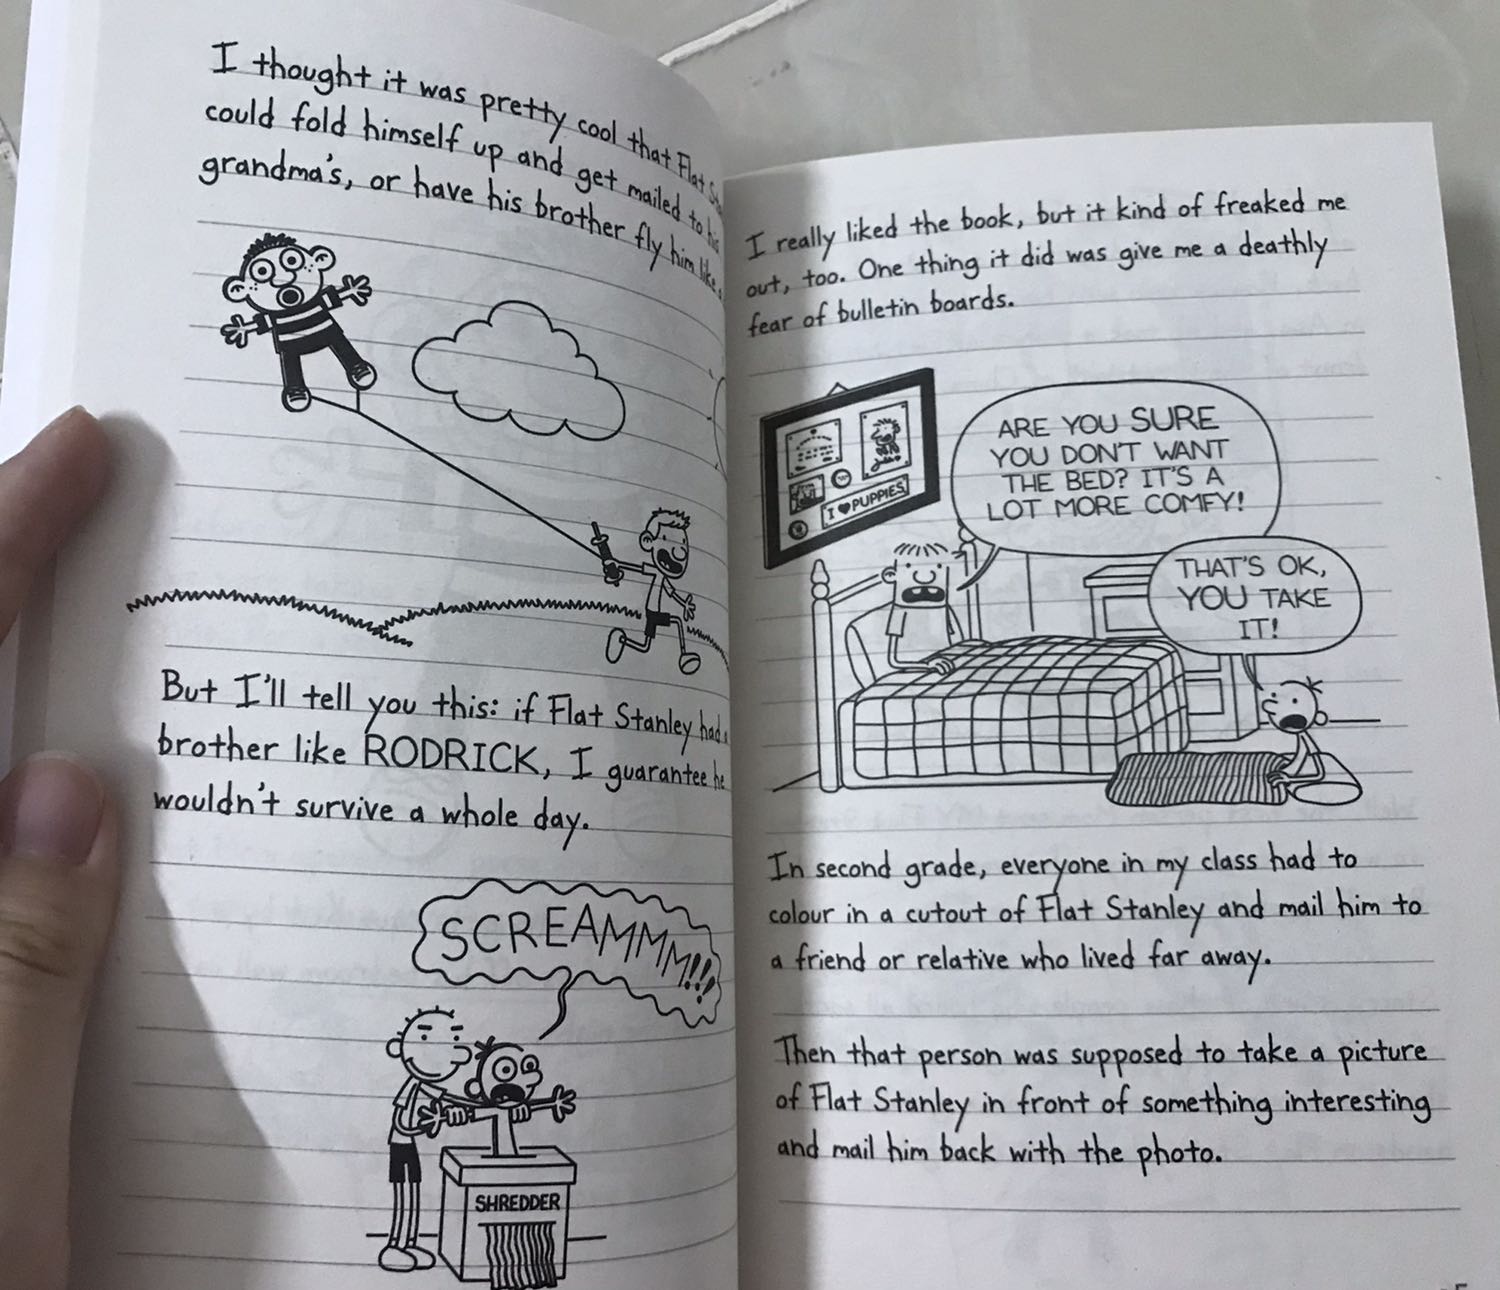 I thought it was pretty cool that Flat
could fold himself up and get mailed to his
grandma's, or have his brother fly him like
But I'll tell you this: if Flat Stanley had
brother like RODRICK, I guarantee he
wouldn't survive a whole day.
SCREAMMMM!!!
SHREDDER
I really liked the book, but it kind of freaked me
out, too. One thing it did was give me a deathly
fear of bulletin boards.
I ♥ PUPPIES
ARE YOU SURE
YOU DON'T WANT
THE BED? IT'S A
LOT MORE COMFY!
THAT'S OK,
YOU TAKE
IT!
In second grade, everyone in my class had to
colour in a cutout of Flat Stanley and mail him to
a friend or relative who lived far away.
Then that person was supposed to take a picture
of Flat Stanley in front of something interesting
and mail him back with the photo.